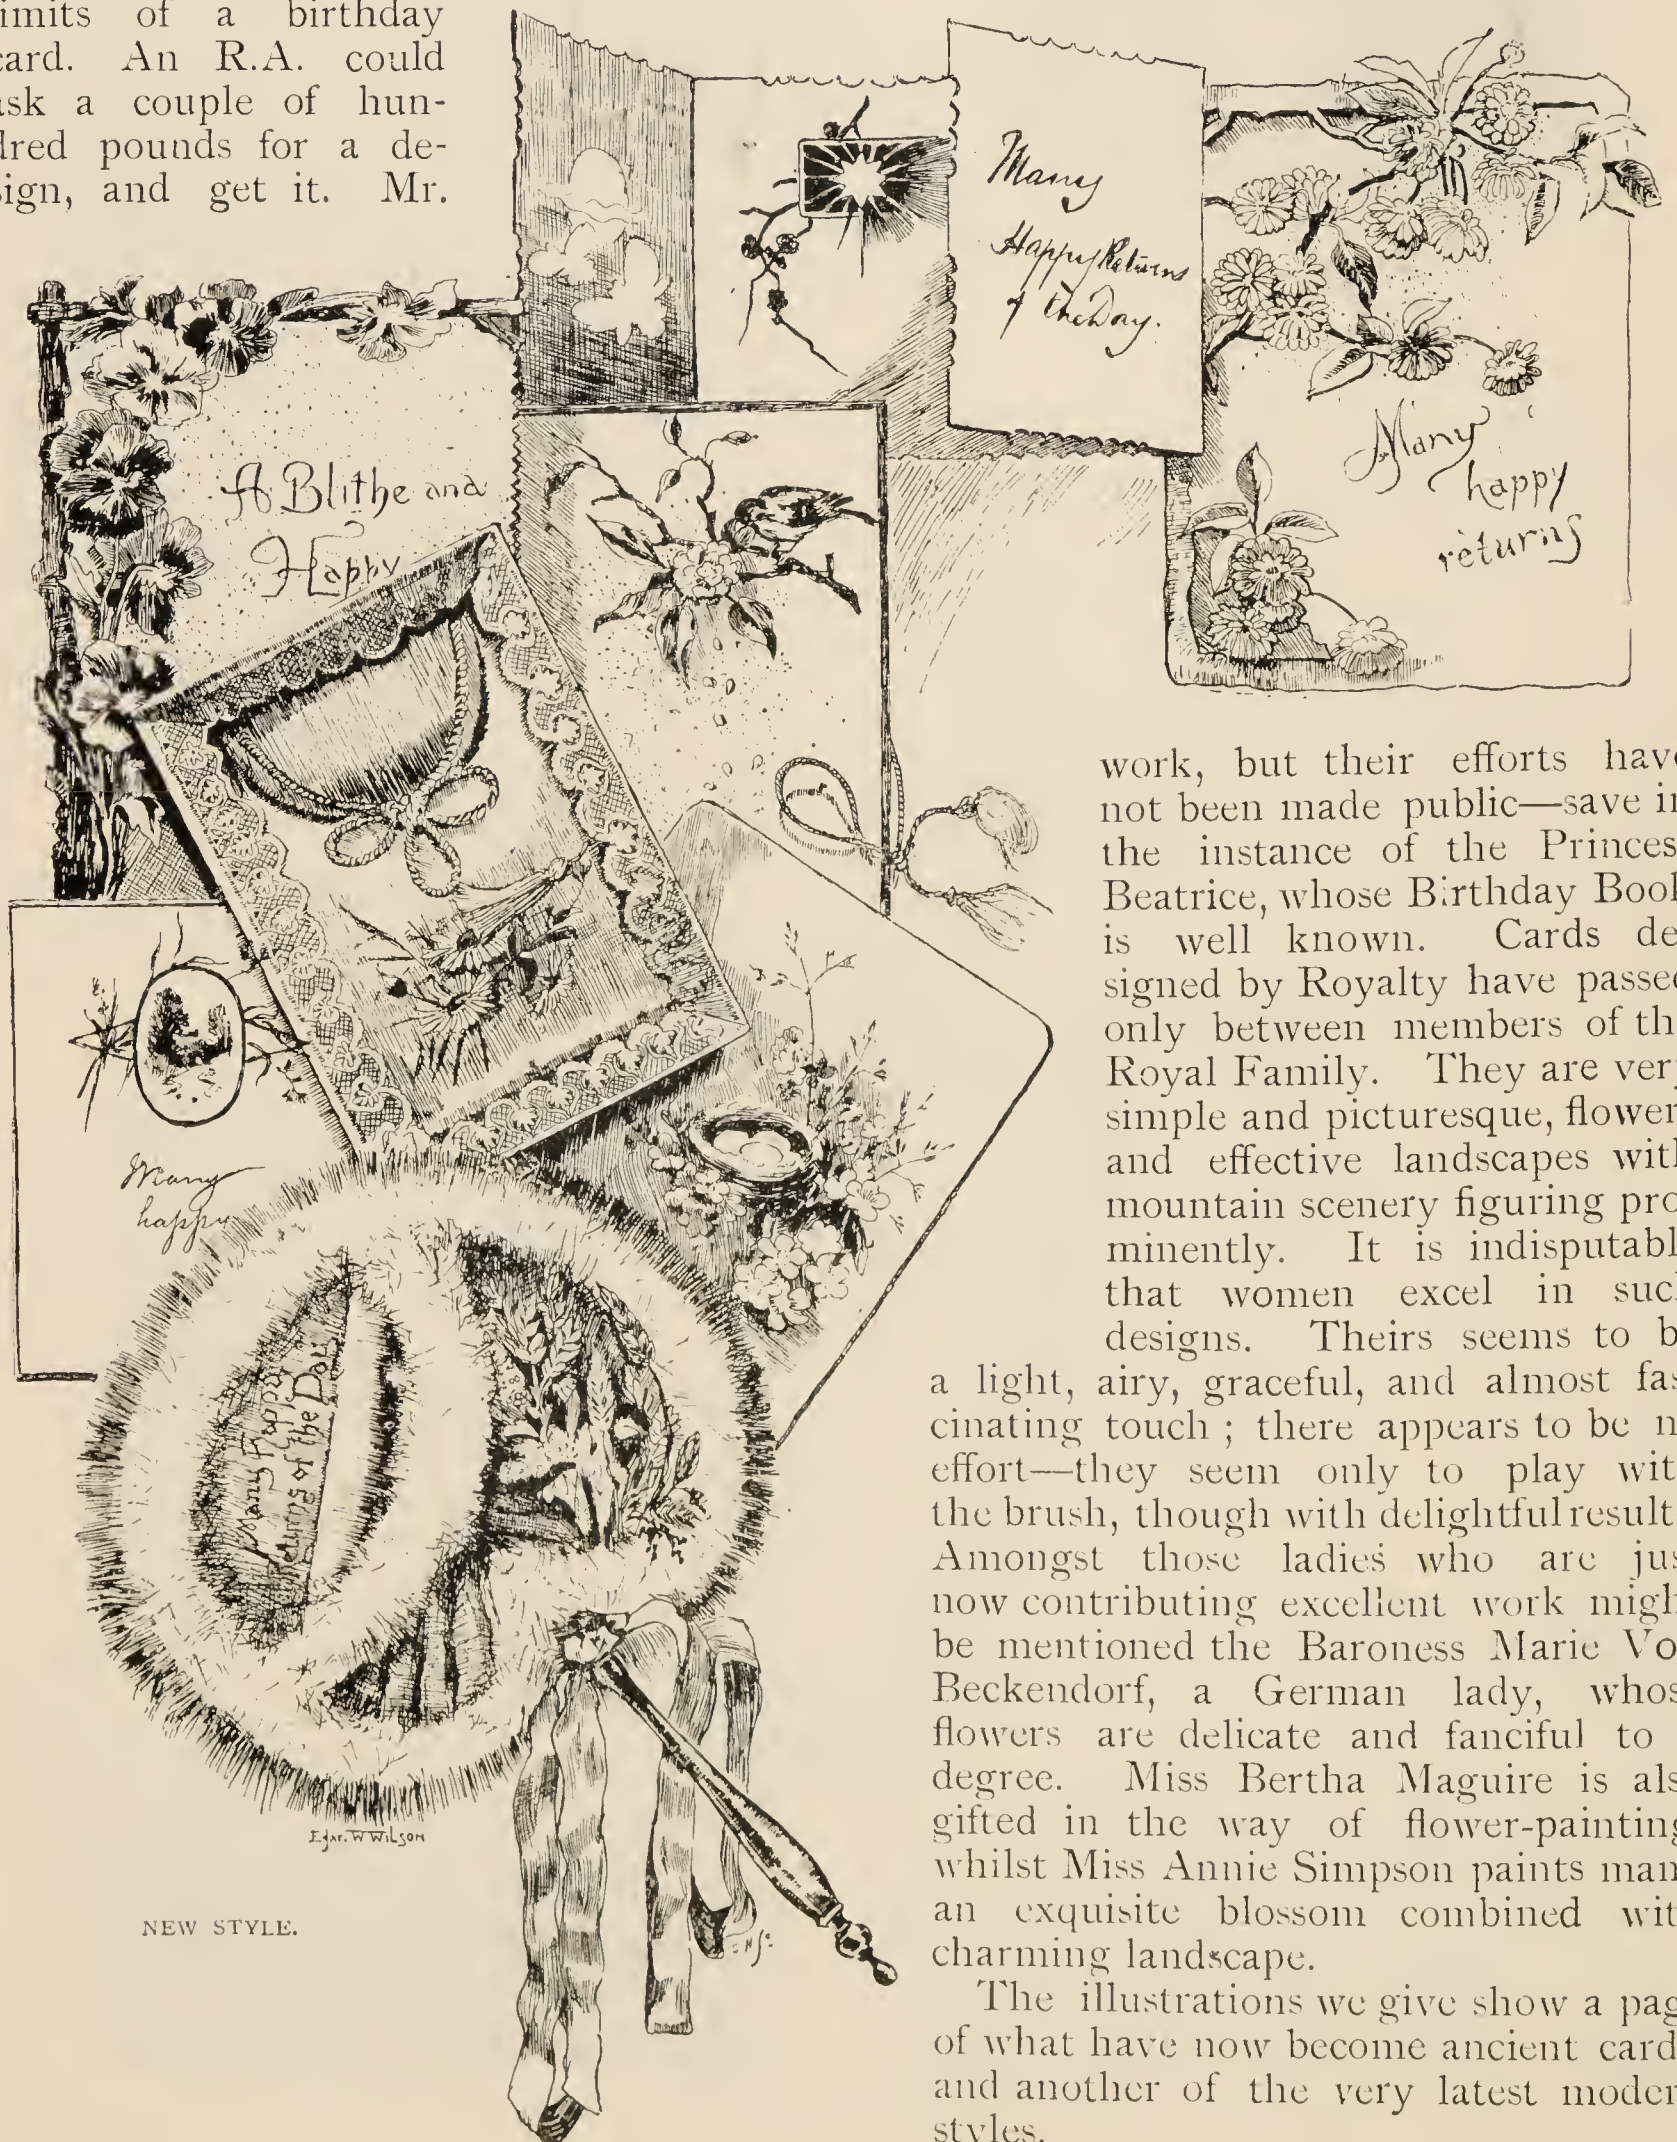 of a birthday
An R.A. could
a couple of hun-
pounds for a de-
and get it. Mr.
Many
Happy Returns
of the Day.
Many
happy
returns
A Blithe and
Happy
Many
happy
Many Happy
Returns of the Day
Edgar. W Wilson
NEW STYLE.
work, but their efforts
not been made public—save
the instance of the
Beatrice, whose Birthday
is well known. Cards de
signed by Royalty have
only between members of
Royal Family. They are
simple and picturesque,
and effective landscapes
mountain scenery figuring pro
minently. It is
that women excel in
designs. Theirs seems to
a light, airy, graceful, and almost fas
cinating touch ; there appears to be
effort—they seem only to play
the brush, though with delightful
Amongst those ladies who are
now contributing excellent work
be mentioned the Baroness Marie
Beckendorf, a German lady,
flowers are delicate and fanciful to
degree. Miss Bertha Maguire is
gifted in the way of flower-painting
whilst Miss Annie Simpson paints
an exquisite blossom combined
charming landscape.
The illustrations we give show a
of what have now become ancient
and another of the very latest
styles.